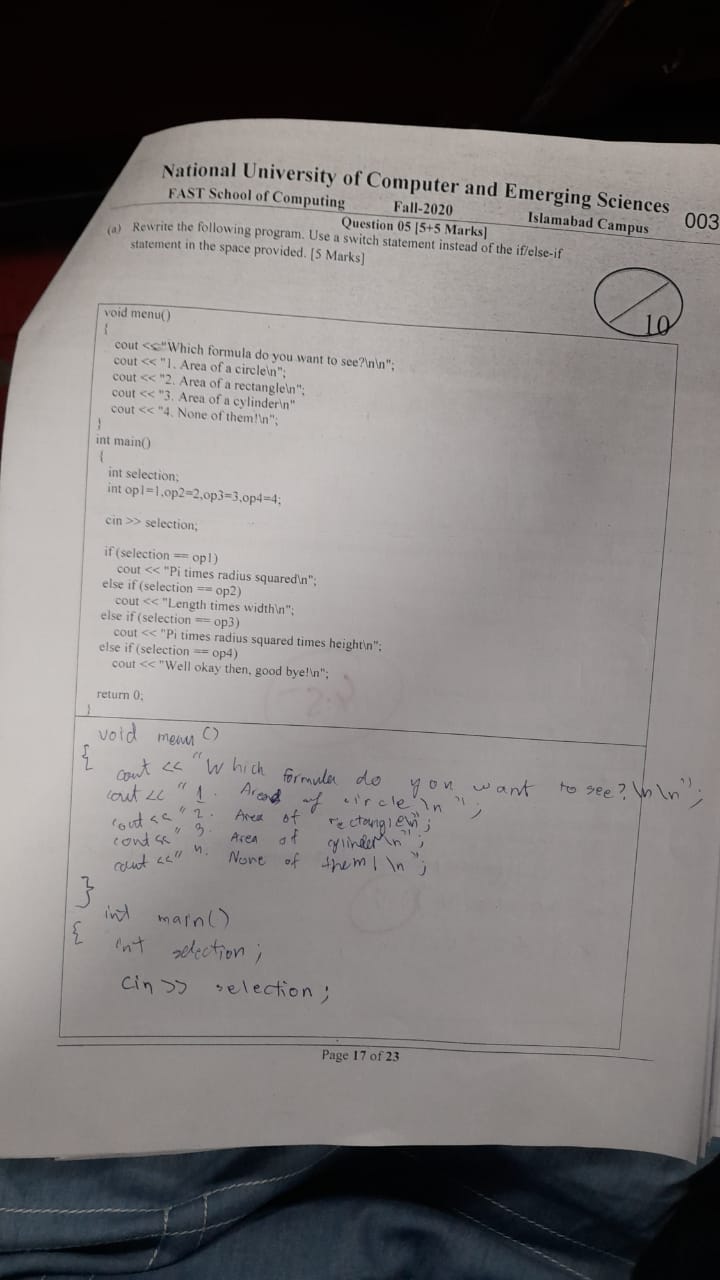 National University of Computer and Emerging Sciences
FAST School of Computing Fall-2020 Islamabad Campus
003
Question 05 [5+5 Marks]
(a) Rewrite the following program. Use a switch statement instead of the if/else-if
statement in the space provided. [5 Marks]
10
void menu()
{
cout <<"Which formula do you want to see?\n\n";
cout << "1. Area of a circle\n";
cout << "2. Area of a rectangle\n";
cout << "3. Area of a cylinder\n"
cout << "4. None of them!\n";
}
int main()
{
int selection;
int op1=1,op2=2,op3=3,op4=4;
cin >> selection;
if (selection == op1)
cout << "Pi times radius squared\n";
else if (selection == op2)
cout << "Length times width\n";
else if (selection == op3)
cout << "Pi times radius squared times height\n";
else if (selection == op4)
cout << "Well okay then, good bye!\n";
return 0;
}
void menu ()
{
cout << "Which formula do you want to see?\n\n");
cout << "1. Area of circle\n";
cout << "2. Area of rectangle\n";
cout << "3. Area of cylinder\n";
cout << "4. None of them!\n";
}
int main()
{
int selection;
cin >> selection;
Page 17 of 23